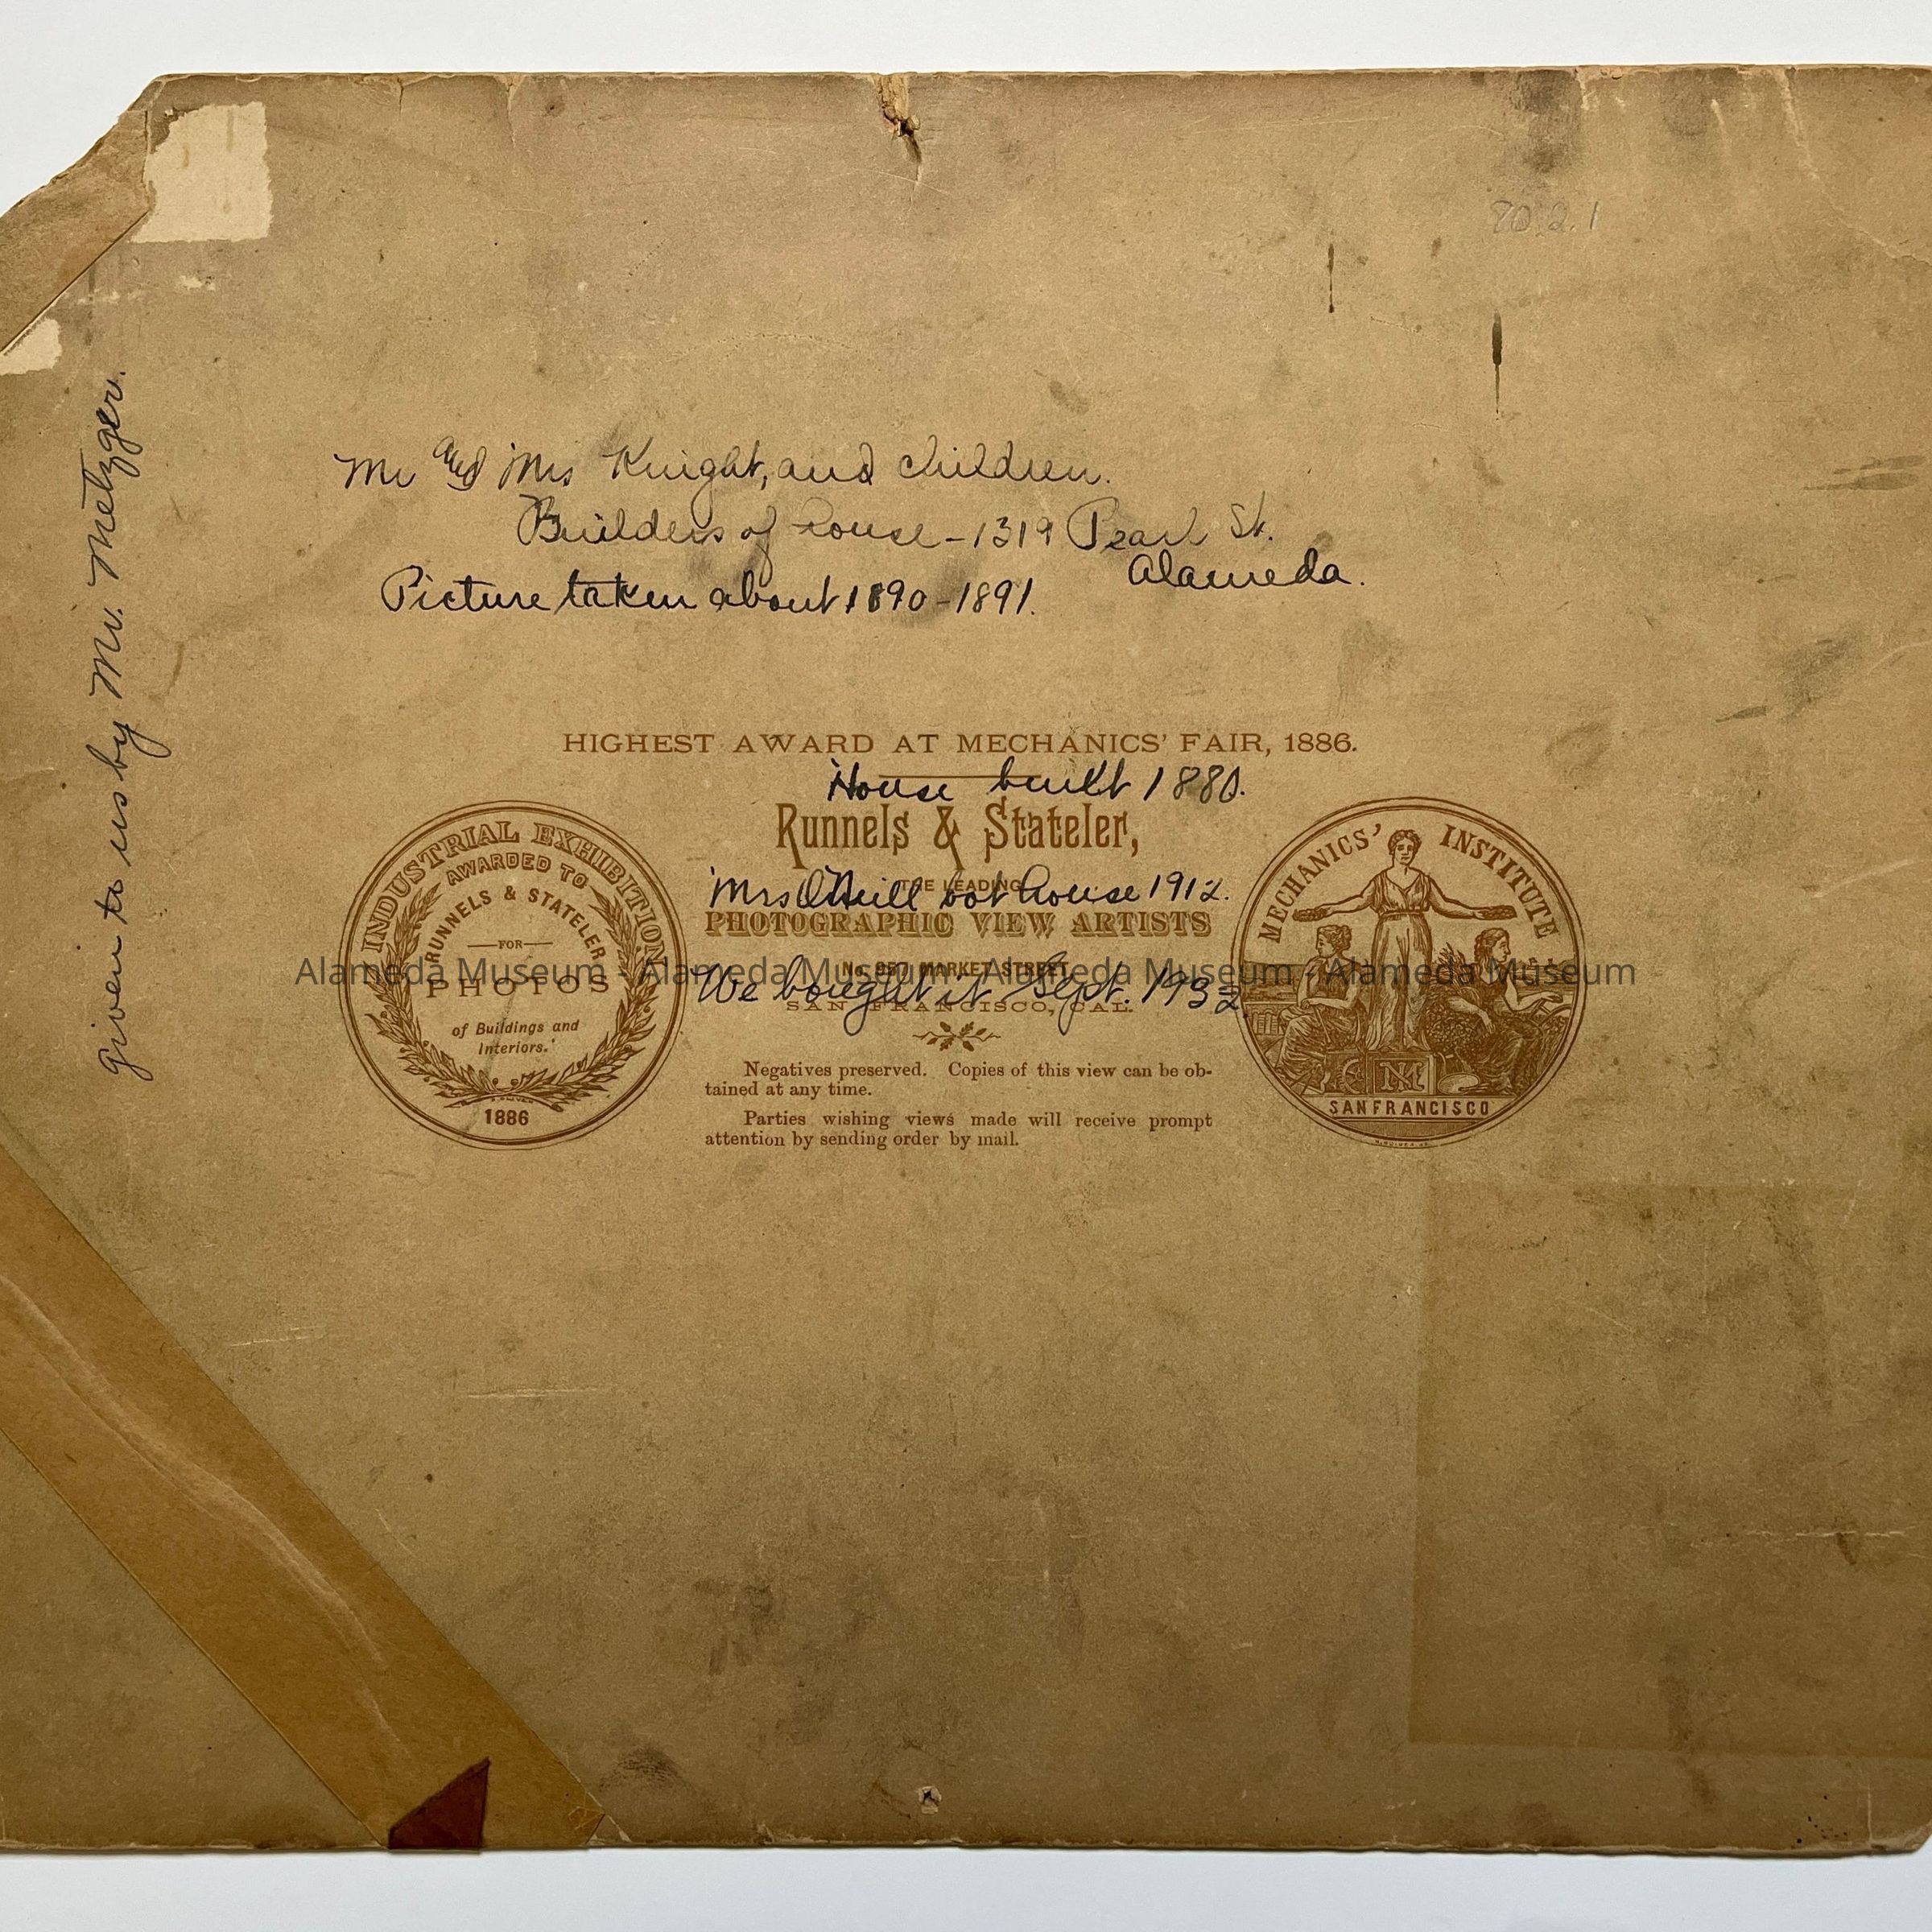 80.2.1
Given to us by Mr. Metzger.
Mr and Mrs Knight, and children.
Builders of house - 1319 Pearl St.
Alameda.
Picture taken about 1890-1891.
HIGHEST AWARD AT MECHANICS' FAIR, 1886.
House built 1880.
Runnels & Stateler,
THE LEADING
Mrs O'Neill bot house 1912.
PHOTOGRAPHIC VIEW ARTISTS
MARKET STREET
We bought it Sept. 1932.
SAN FRANCISCO, CAL.
Negatives preserved. Copies of this view can be ob-
tained at any time.
Parties wishing views made will receive prompt
attention by sending order by mail.
INDUSTRIAL EXHIBITION
AWARDED TO
RUNNELS & STATELER
FOR
PHOTOS
of Buildings and
Interiors.'
1886
MECHANICS' INSTITUTE
SAN FRANCISCO
Alameda Museum - Alameda Museum - Alameda Museum - Alameda Museum